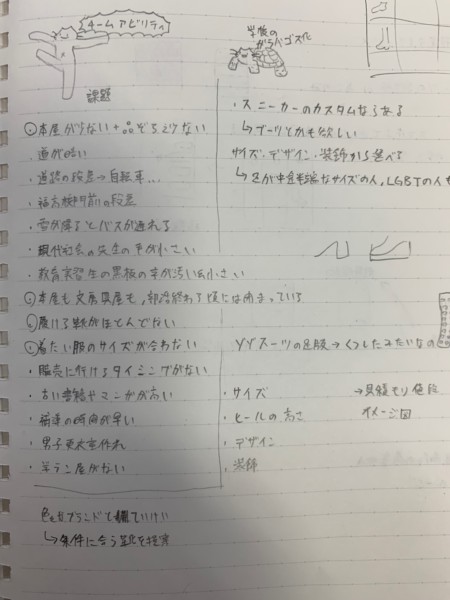 チームアビリティ
学校の
ガラパゴス化
課題
本屋が少ない + 品ぞろえ少ない
・道が暗い
・道路の段差→自転車...
・段差
・雪が降るとバスが遅れる
・現代社会の先生の字が小さい
・教育実習生の黒板の字が汚い&小さい
本屋も文房具屋も、部活終わる頃には閉まっている
履ける靴がほとんどない
着たい服のサイズが合わない
・販売に行けるタイミングがない
・古い書籍やマンガが高い
・の時間が早い
・男子更衣室
・がない
色をブランド
↳条件に合う靴を提案
・スニーカーのカスタムならある
↳ブーツとかも欲しい
サイズ・デザイン・装飾から選べる
↳足が中途半端なサイズの人、LGBTの人も
ゾゾスーツの足版→くつしたみたいなの
・サイズ
・ヒールの高さ
・デザイン
・装飾
→見積もり値段
イメージ図